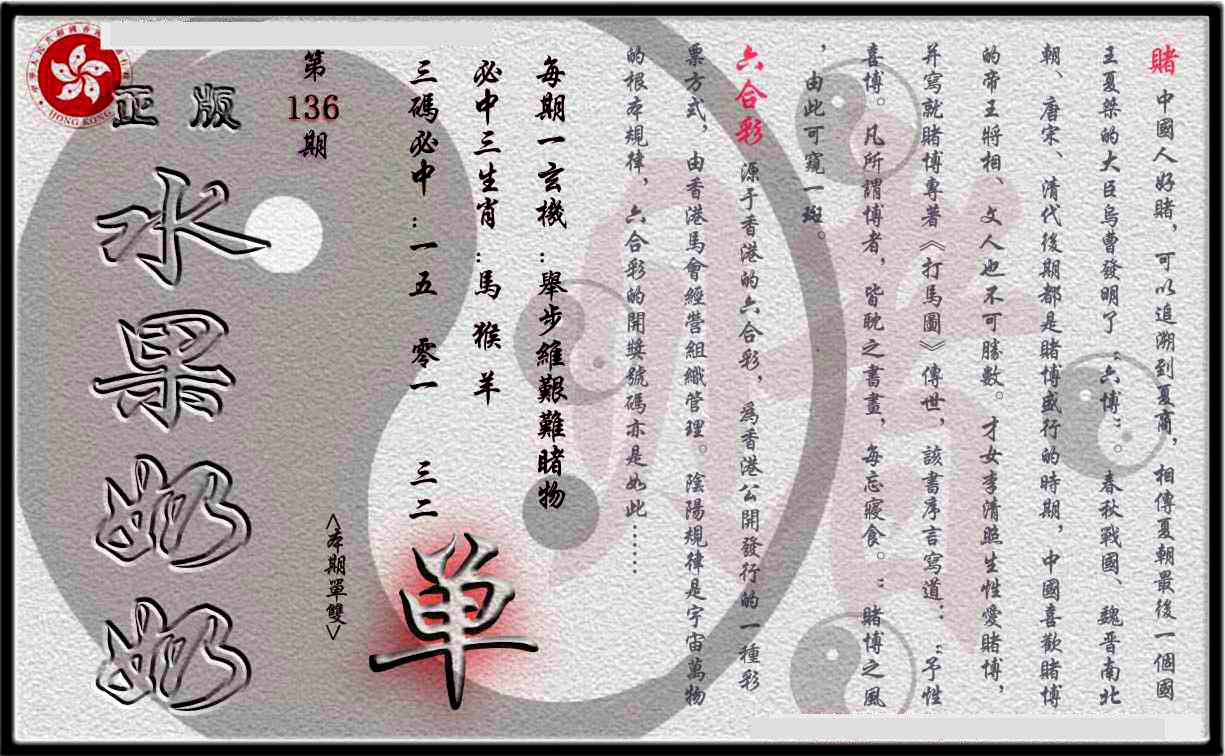 賭 中國人好賭，可以追溯到夏商，相傳夏朝最後一個國
王夏桀的大臣烏曹發明了“六博”。春秋戰國、魏晋南北
朝、唐宋、清代後期都是賭博盛行的時期，中國喜歡賭博
的帝王將相、文人也不可勝數。才女李清照生性愛賭博，
并寫就賭博專著《打馬圖》傳世，該書序言寫道：“予性
喜博。凡所謂博者，皆耽之書畫，每忘寢食。”賭博之風
，由此可窺一斑。
六合彩 源于香港的六合彩，為香港公開發行的一種彩
票方式，由香港馬會經營組織管理。陰陽規律是宇宙萬物
的根本規律，六合彩的開獎號碼亦是如此……
每期一玄機：舉步維艱難睹物
必中三生肖：馬 猴 羊
三碼必中：一五 零一 三二
单
<本期單雙>
第136期
正版
水果奶奶
HONG KONG